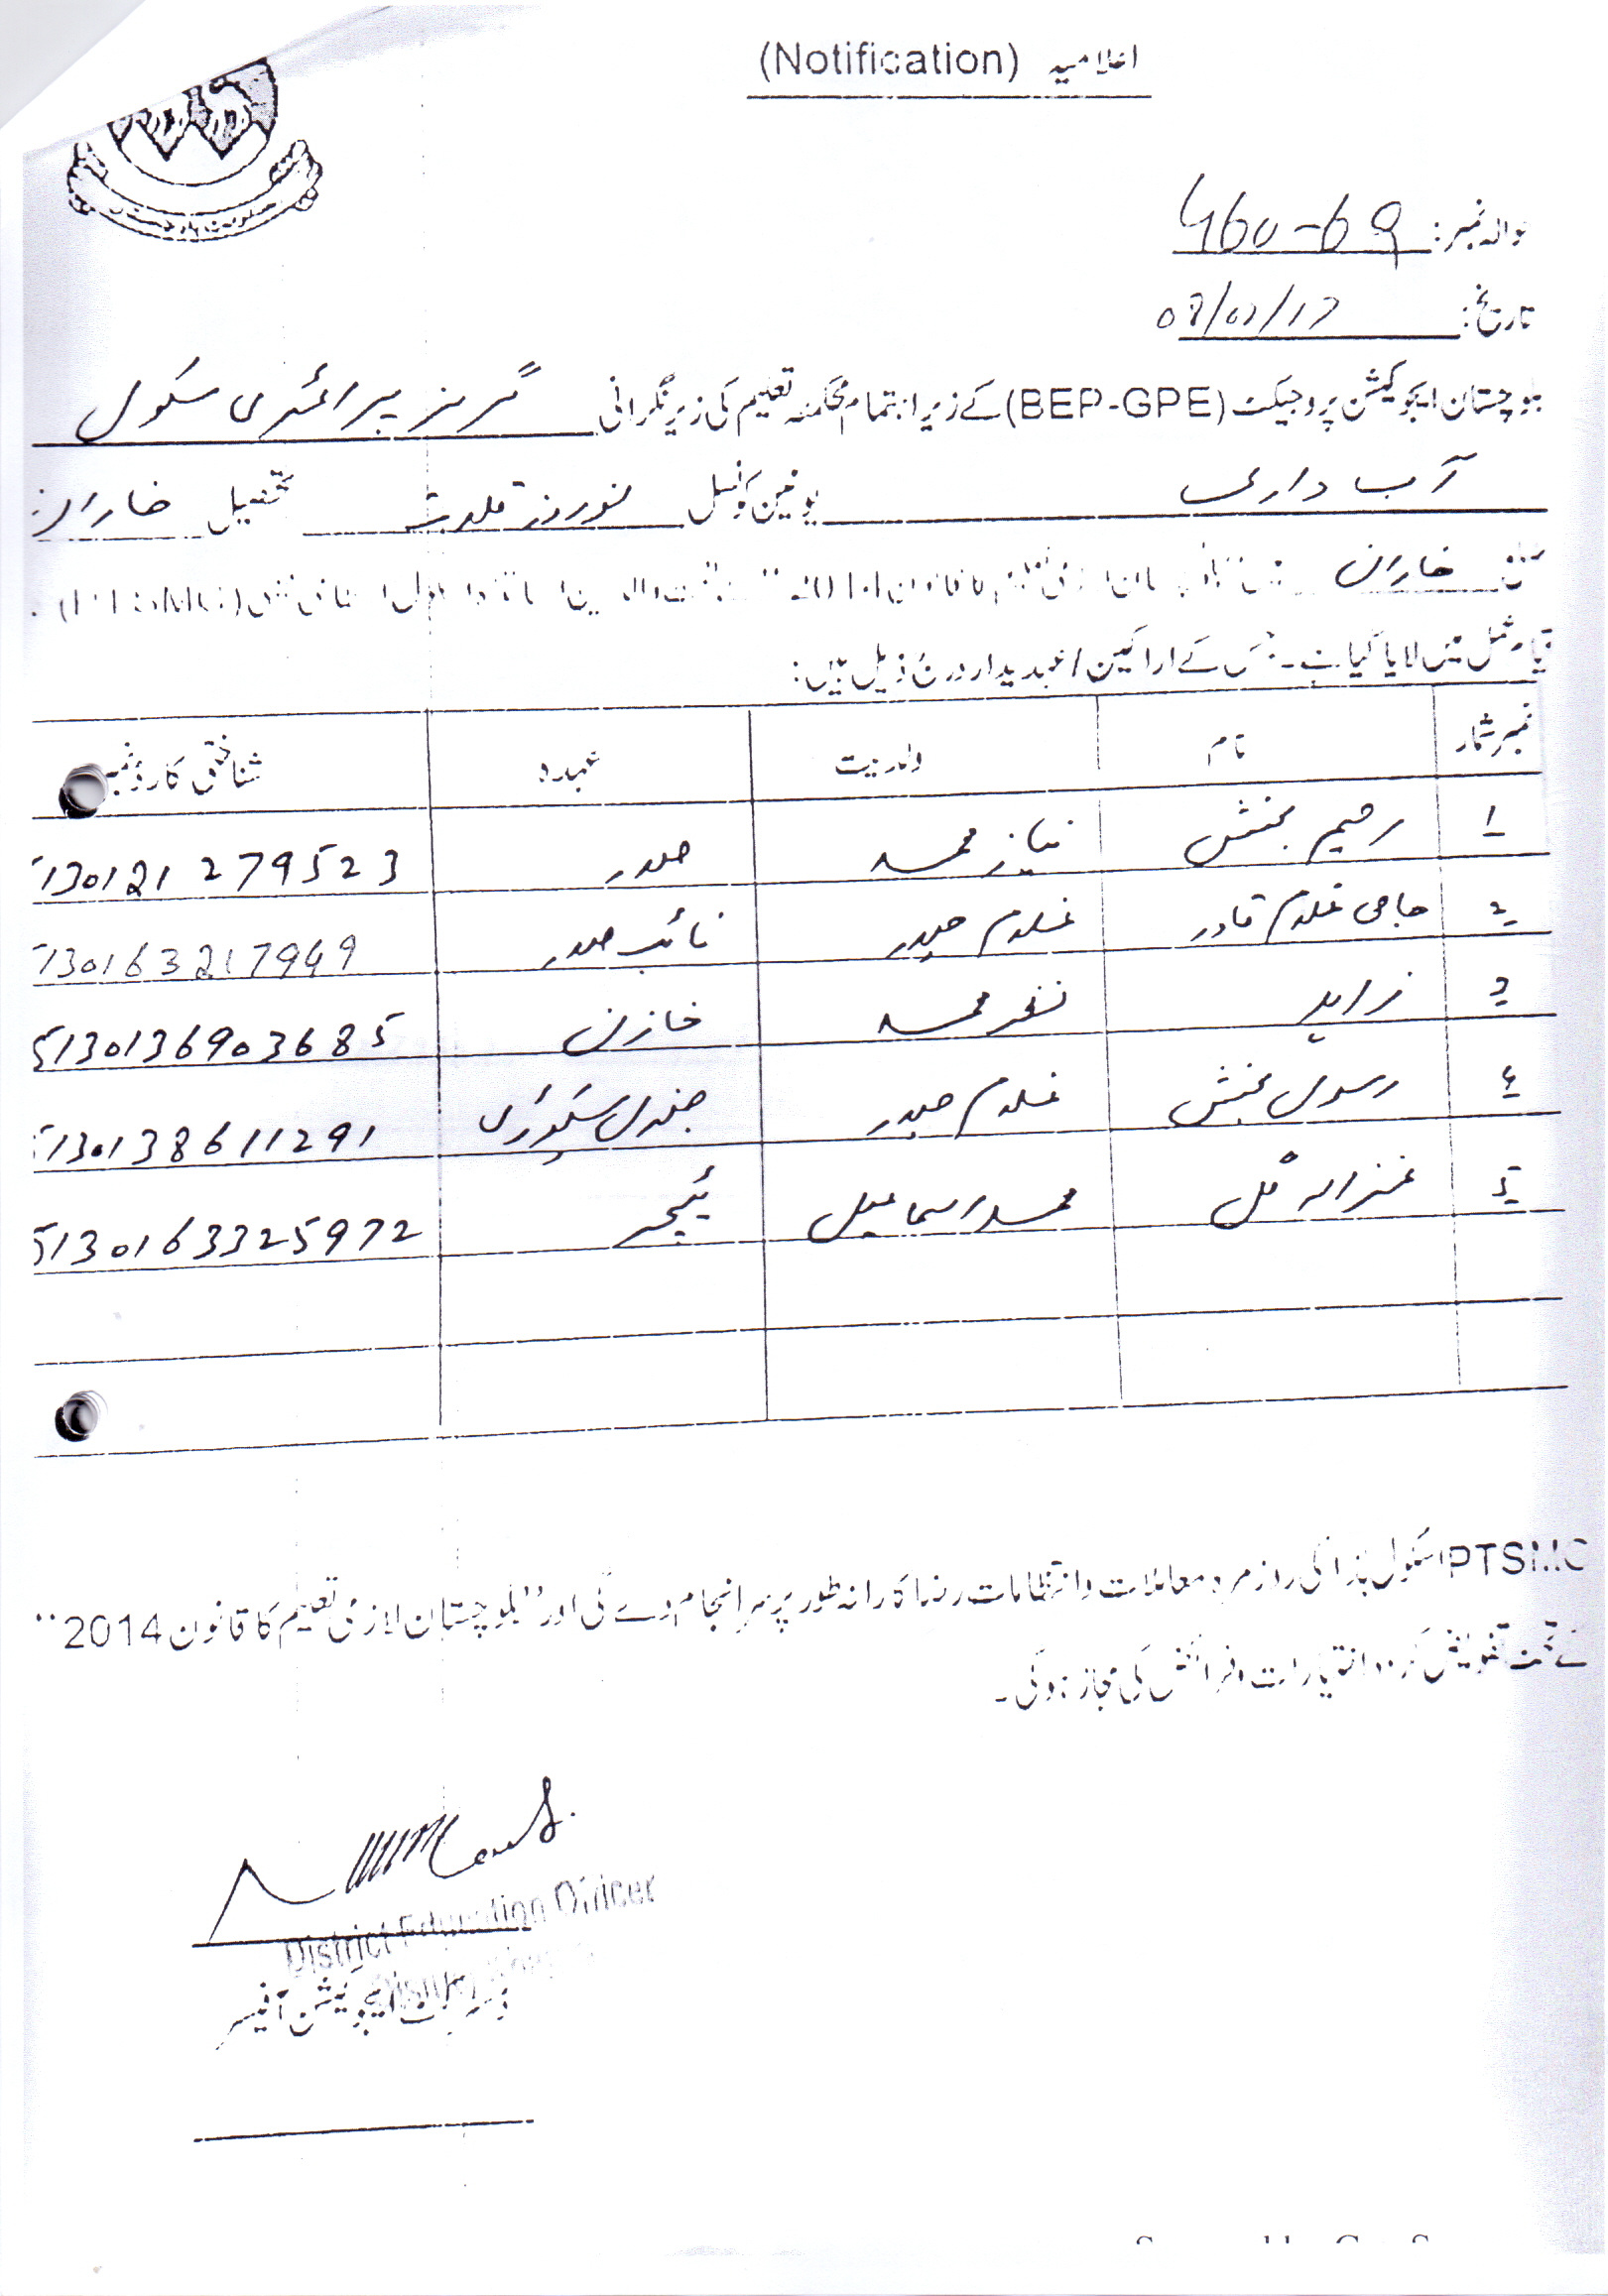 اعلامیہ (Notification)
حوالہ نمبر: 460-69
تاریخ:
بلوچستان ایجوکیشن پروجیکٹ (BEP-GPE) کے زیر اہتمام محکمہ تعلیم کی زیر نگرانی گرلز پرائمری سکول
آب داری یونین کونسل نوروز قلات تحصیل خاران
ضلع خاران میں
عمل میں لایا گیا ہے۔ جس کے اراکین / عہدیدار درج ذیل ہیں:
نمبر شمار نام ولدیت عہدہ شناختی کارڈ نمبر
۱ رحیم بخش نیاز محمد صدر 5130121279523
۲ حاجی غلام قادر غلام حیدر نائب صدر 5130163217949
۳ زاہد نذر محمد خازن 5130136903685
۴ رسول بخش غلام حیدر جنرل سیکرٹری 5130138611291
۵ غزالہ گل محمد اسماعیل ٹیچر 5130163325972
PTSMC اسکول ہذا کی روزمرہ معاملات و انتظامات رضاکارانہ طور پر سرانجام دے گی اور "بلوچستان لازمی تعلیم کا قانون 2014"
کے تحت تفویض کردہ اختیارات و فرائض کی مجاز ہوگی۔
District Education Officer
ڈسٹرکٹ ایجوکیشن آفیسر